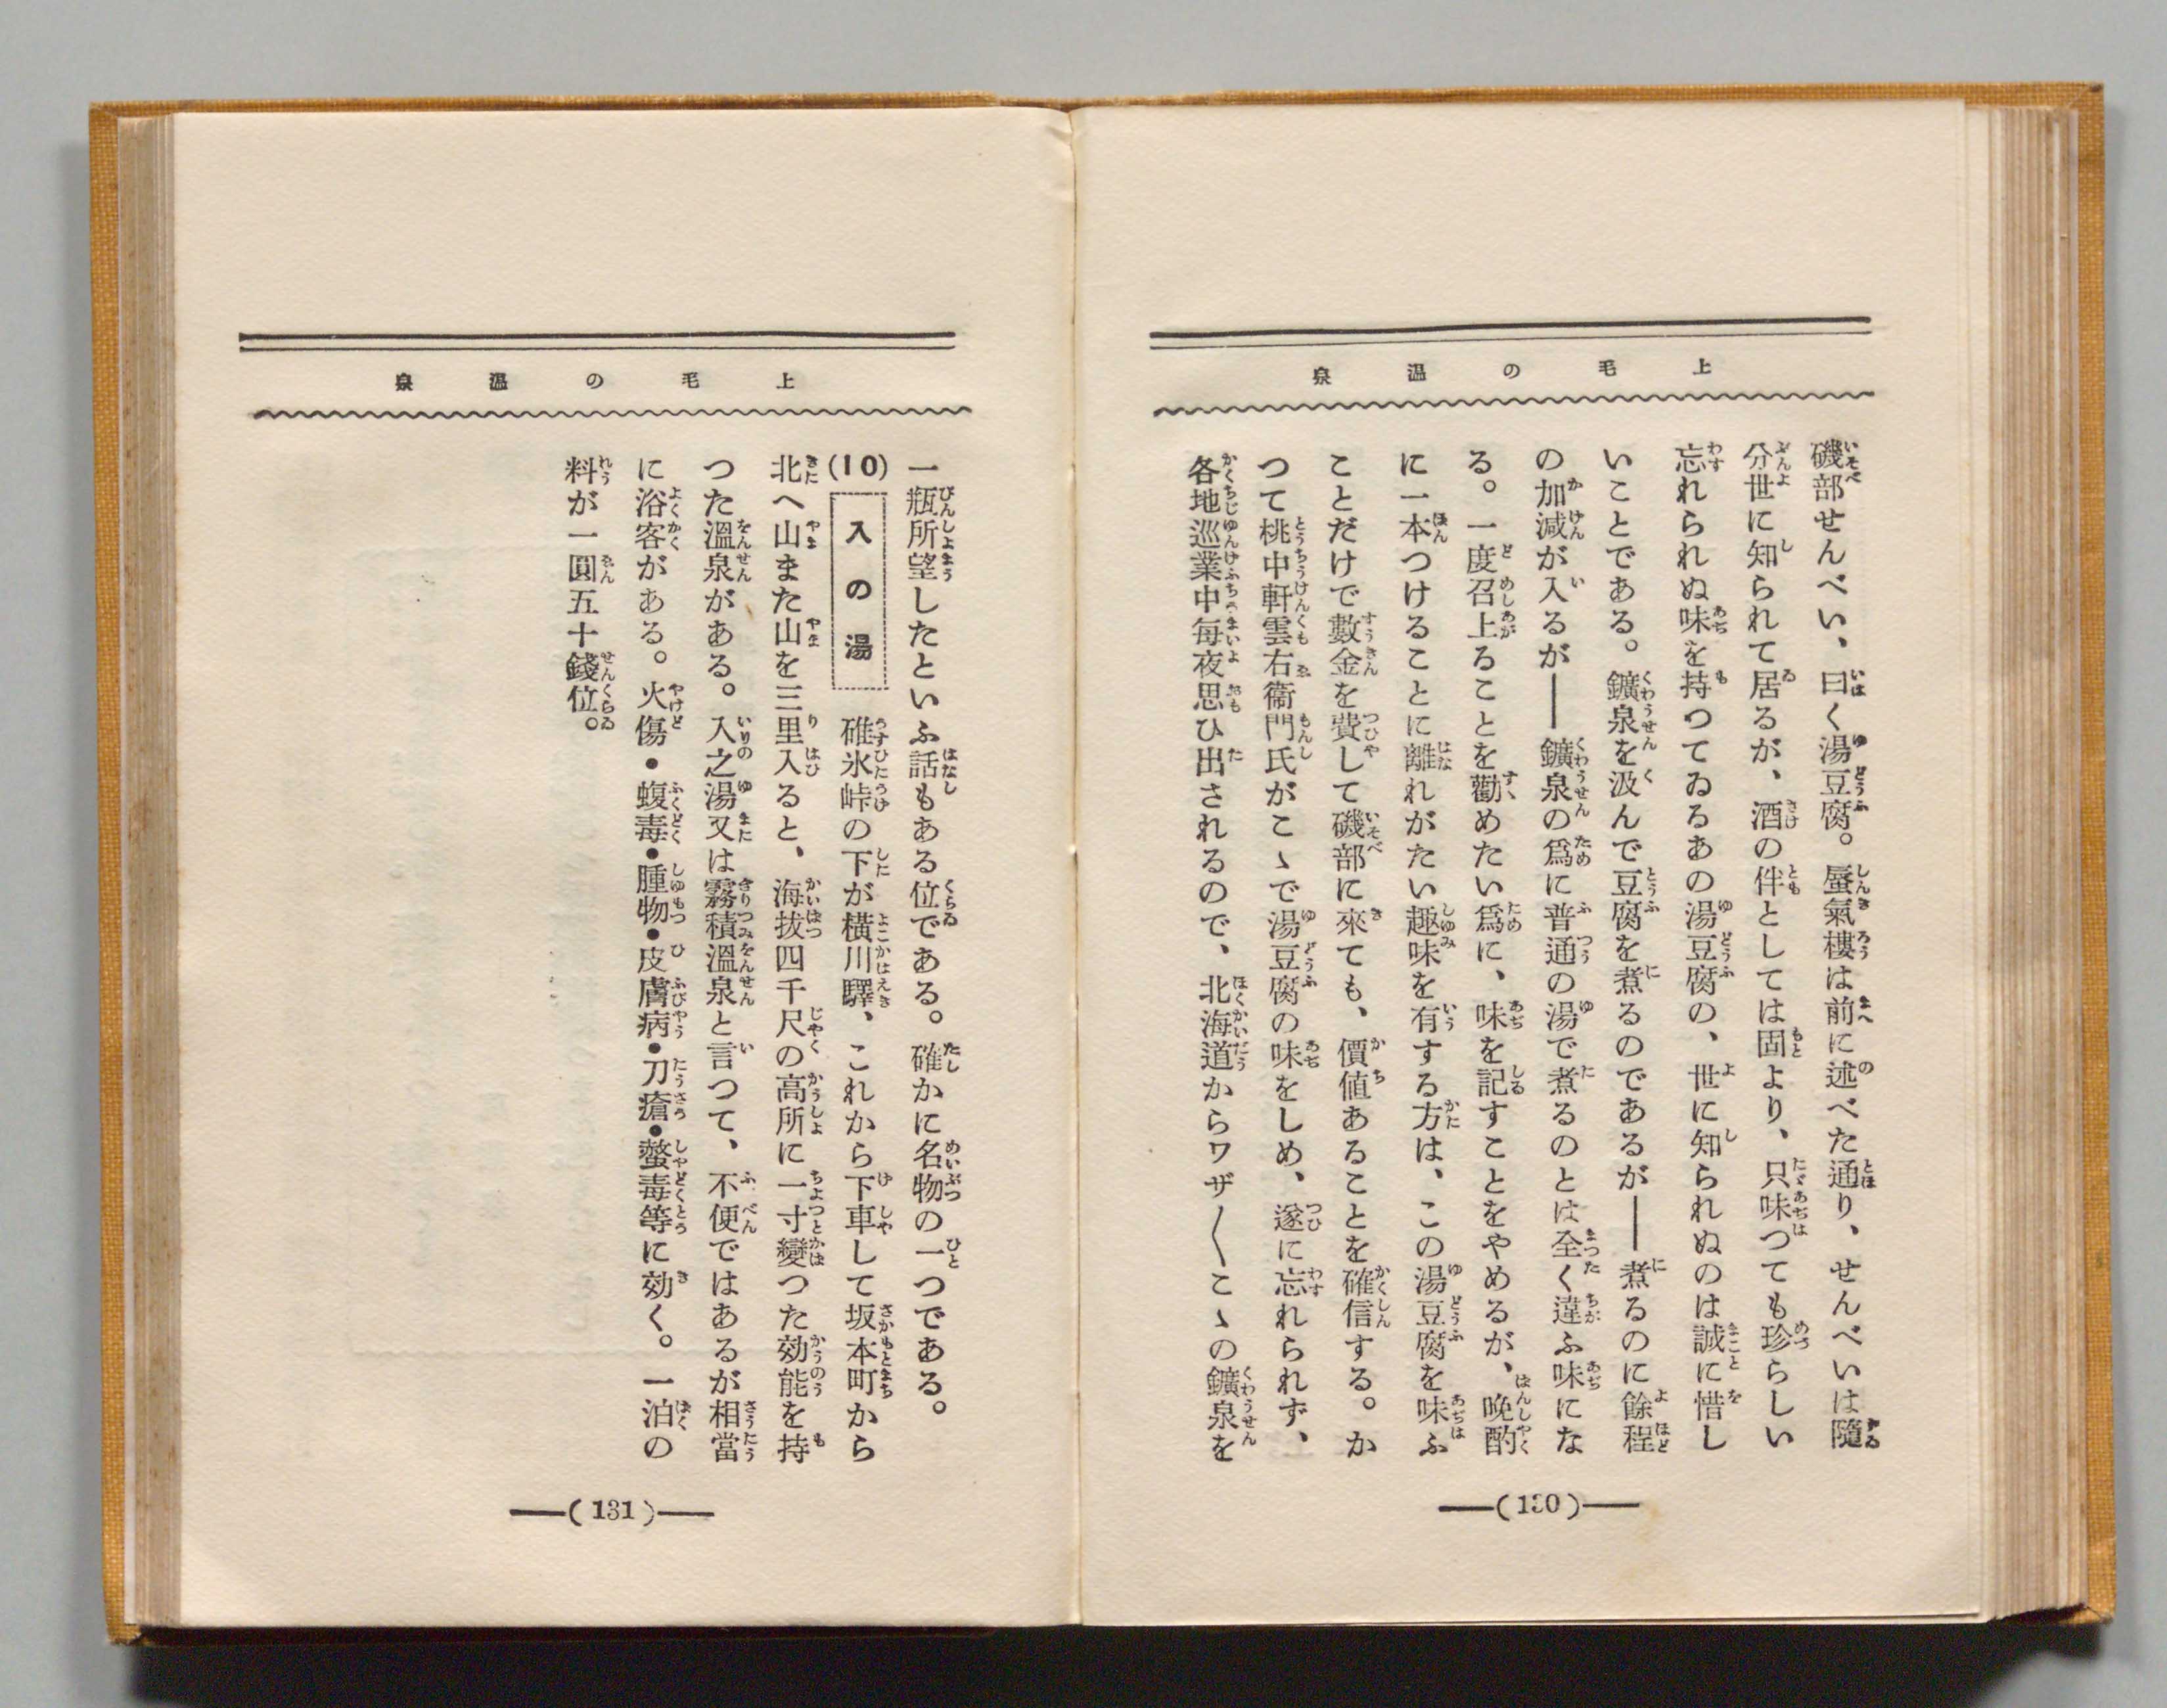 上毛の温泉
磯部せんべい、曰く湯豆腐。蜃氣樓は前に述べた通り、せんべいは隨
分世に知られて居るが、酒の伴としては固より、只味つても珍らしい
忘れられぬ味を持つてゐるあの湯豆腐の、世に知られぬのは誠に惜し
いことである。鑛泉を汲んで豆腐を煮るのであるが――煮るのに餘程
の加減が入るが――鑛泉の爲に普通の湯で煮るのとは全く違ふ味にな
る。一度召上ることを勸めたい爲に、味を記すことをやめるが、晩酌
に一本つけることに離れがたい趣味を有する方は、この湯豆腐を味ふ
ことだけで數金を費して磯部に來ても、價値あることを確信する。か
つて桃中軒雲右衞門氏がこゝで湯豆腐の味をしめ、遂に忘れられず、
各地巡業中毎夜思ひ出されるので、北海道からワザ〱こゝの鑛泉を
―(130)―
上毛の温泉
一瓶所望したといふ話もある位である。確かに名物の一つである。
(10) 入の湯 碓氷峠の下が横川驛、これから下車して坂本町から
北へ山また山を三里入ると、海抜四千尺の高所に一寸變つた効能を持
つた溫泉がある。入之湯又は霧積溫泉と言つて、不便ではあるが相當
に浴客がある。火傷・蝮毒・腫物・皮膚病・刀瘡・螫毒等に効く。一泊の
料が一圓五十錢位。
―(131)―